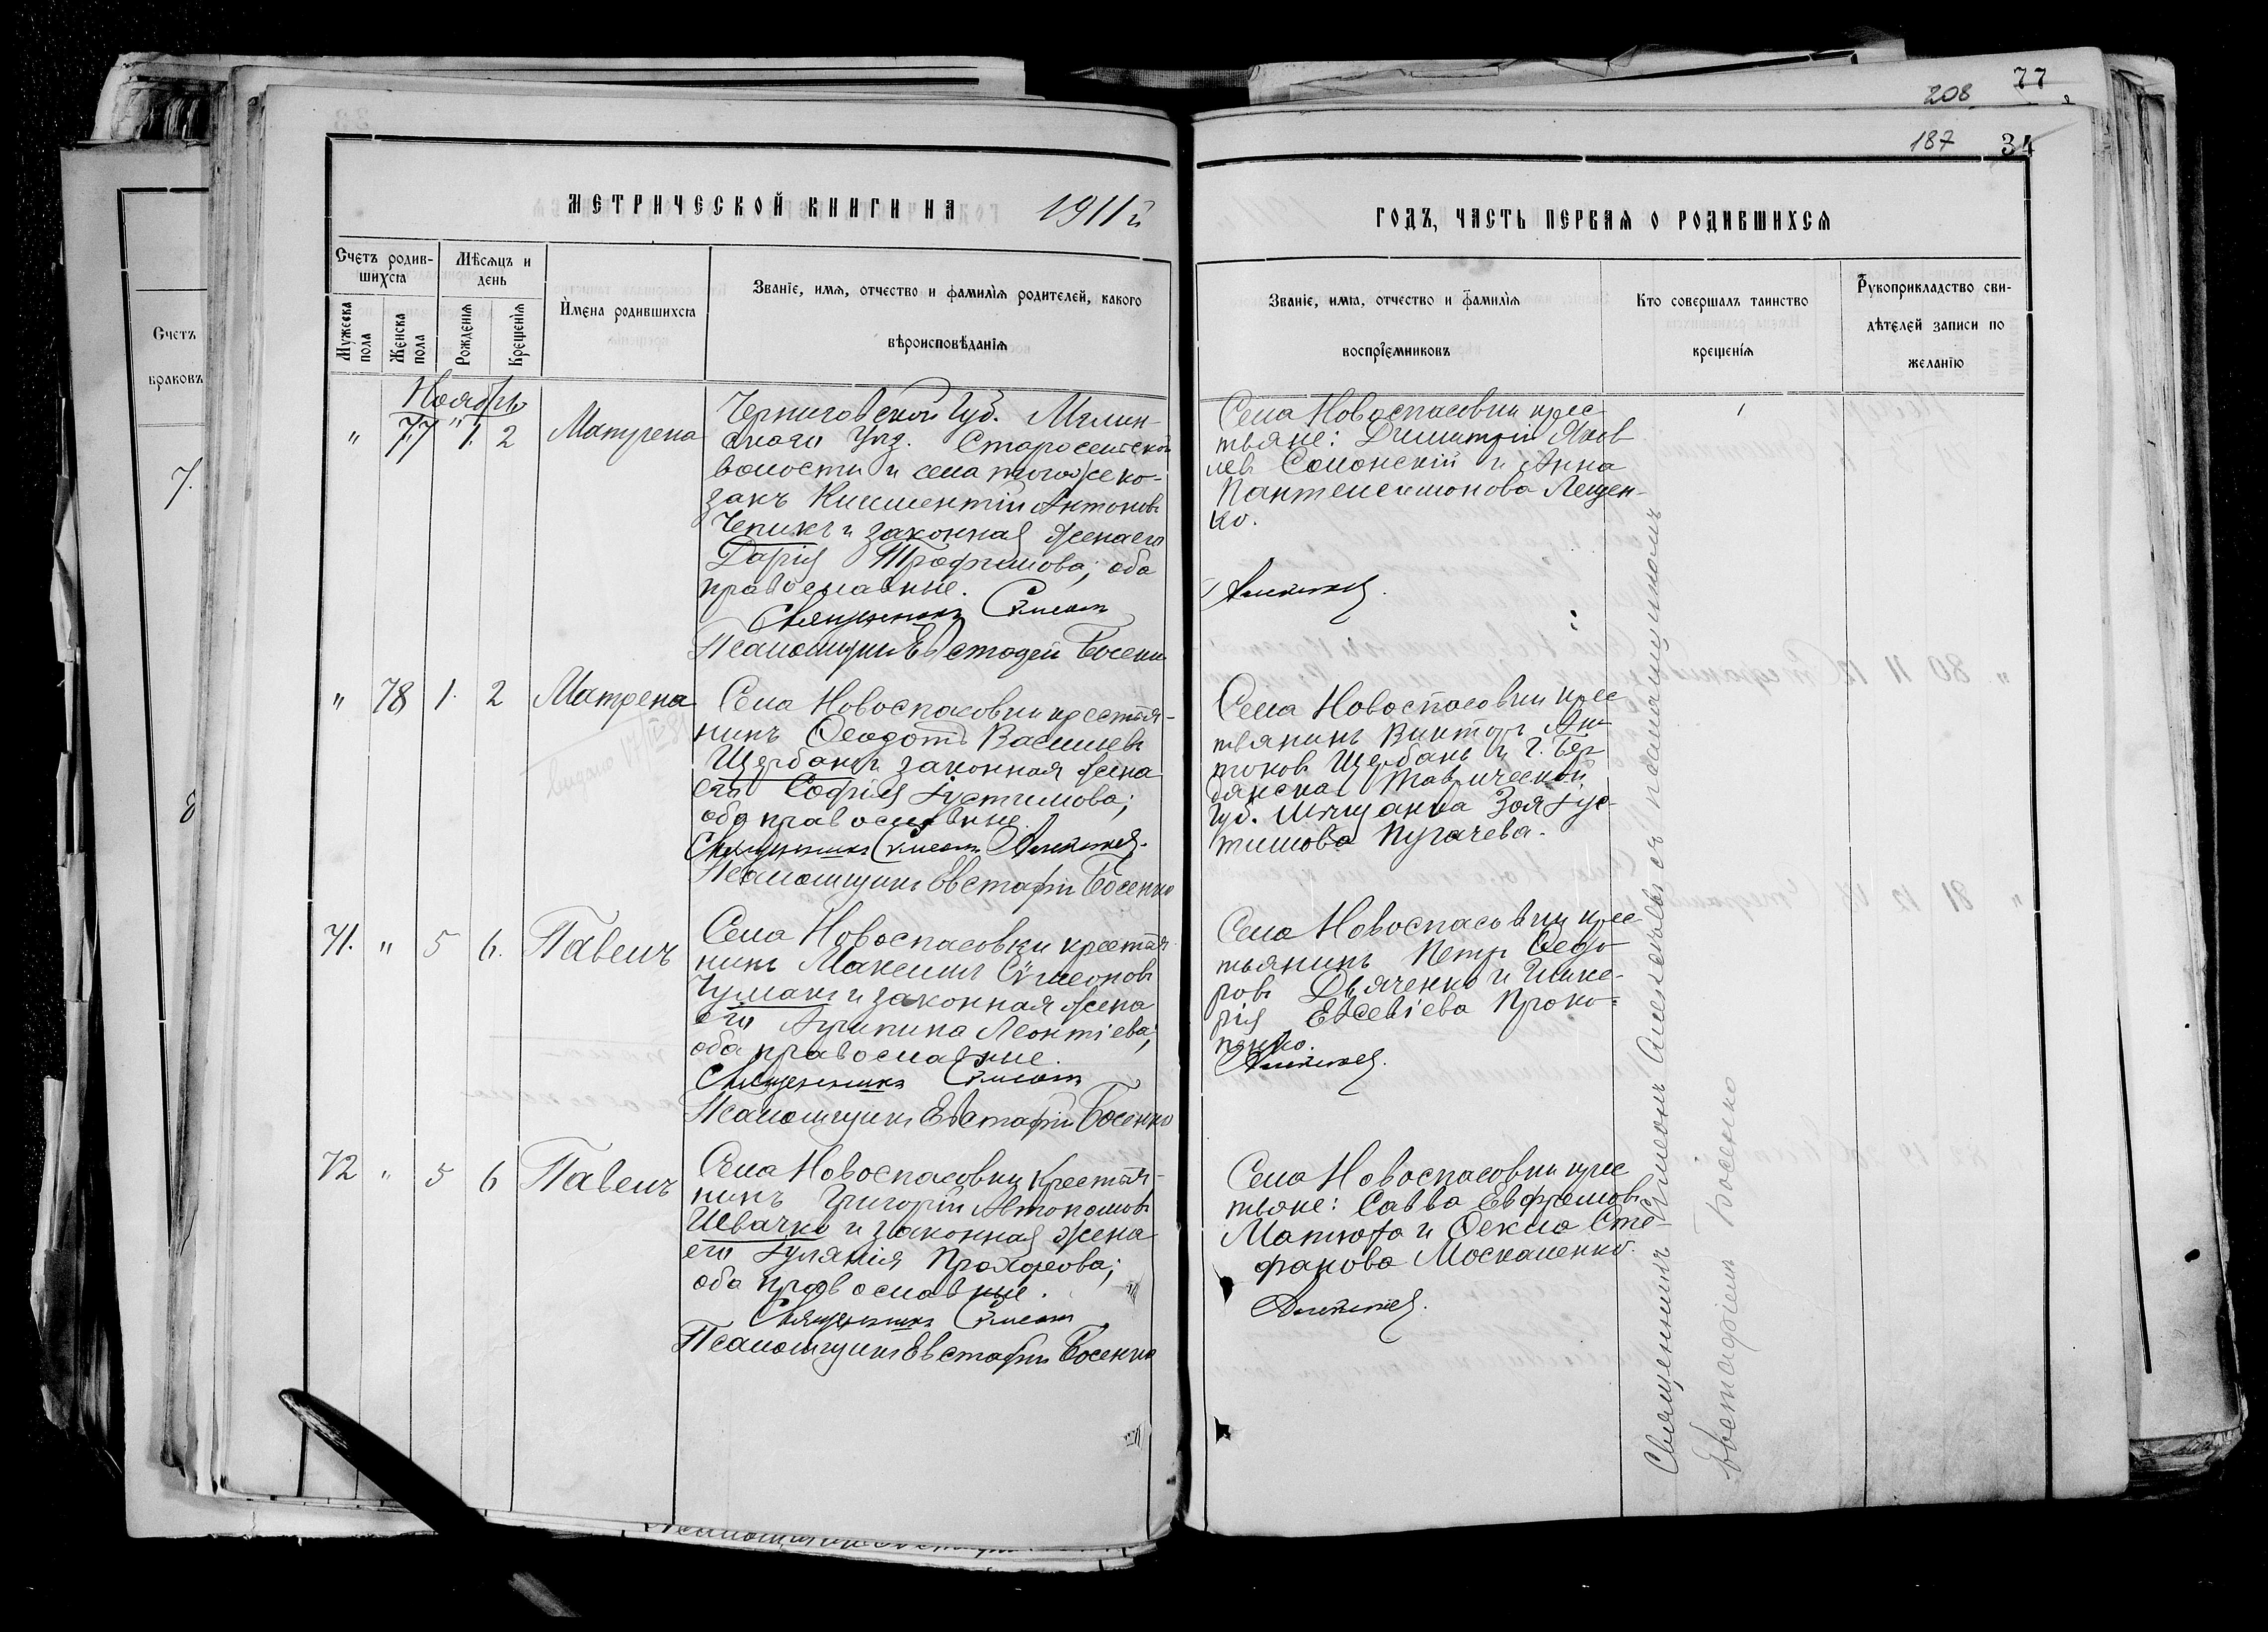 77
208
187 34
МЕТРИЧЕСКОЙ КНИГИ НА 1911й
ГОДЪ, ЧАСТЬ ПЕРВАЯ О РОДИВШИХСЯ
Счетъ родив-
шихся
Мужеска пола
Женска пола
Мѣсяцъ и
день
Рожденія
Крещенія
Имена родившихся
Званіе, имя, отчество и фамилія родителей, какого
вѣроисповѣданія
Званіе, имя, отчество и фамилія
воспріемниковъ
Кто совершалъ таинство
крещенія
Рукоприкладство сви-
дѣтелей записи по
желанію
Счетъ
браковъ
7.
8
Ноябрь
" 77 1. 2 Матрена
Черниговской губ. Мглин-
скаго уѣзд. Старосельской
волости и села тогоже ко-
закъ Климентій Антоновъ
Чепикъ и законная жена его
Дарія Трофимова; оба
православные.
Священникъ Сѵмеонъ
Псаломщикъ Евстафій Босенко
Села Новоспасовки крес-
тьяне: Димитрій Яков-
левъ Солонскій и Анна
Пантелеимонова Лещен-
ко.
" 78 1. 2 Матрена
выдано
Села Новоспасовки крестья-
нинъ Ѳеодотъ Василиевъ
Щербакъ и законная жена
его Софія Іустимова;
оба православные.
Священникъ Сѵмеонъ
Псаломщикъ Евстафій Босенко
Села Новоспасовки крес-
тьянинъ Викторъ Ан-
тоновъ Щербакъ и г. Бер-
дянска Таврической
губ. мѣщанка Зоя Іус-
тимова Пугачева.
71. " 5 6. Павелъ
Села Новоспасовки крестья-
нинъ Максимъ Сѵмеоновъ
Чумакъ и законная жена
его Агрипина Леонтіева;
оба православные.
Священникъ Сѵмеонъ
Псаломщикъ Евстафій Босенко
Села Новоспасовки крес-
тьянинъ Петръ Ѳедо-
ровъ Дьяченко и Глике-
рія Евсевіева Проко-
пенко.
72 " 5 6 Павелъ
Села Новоспасовки крестья-
нинъ Григорій Автономовъ
Швачко и законная жена
его Іуліанія Прохорова;
оба православные.
Священникъ Сѵмеонъ
Псаломщикъ Евстафій Босенко
Села Новоспасовки крес-
тьяне: Савва Евфремовъ
Матюха и Ѳекла Сте-
фанова Москаленко.
Священникъ Сѵмеонъ съ псаломщикомъ
Евстафіемъ Босенко